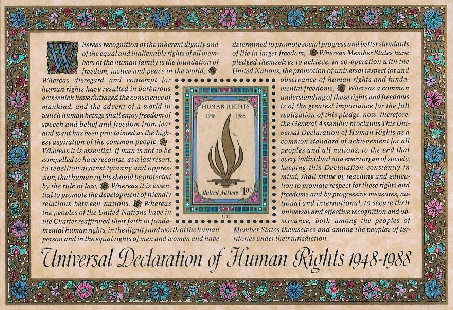 Whereas recognition of the inherent dignity and
of the equal and inalienable rights of all mem-
bers of the human family is the foundation of
freedom, justice and peace in the world,
Whereas disregard and contempt for
human rights have resulted in barbarous
acts which have outraged the conscience of
mankind, and the advent of a world in
which human beings shall enjoy freedom of
speech and belief and freedom from fear
and want has been proclaimed as the high-
est aspiration of the common people,
Whereas it is essential, if man is not to be
compelled to have recourse, as a last resort,
to rebellion against tyranny and oppres-
sion, that human rights should be protected
by the rule of law, Whereas it is essen-
tial to promote the development of friendly
relations between nations, Whereas
the peoples of the United Nations have in
the Charter reaffirmed their faith in funda-
mental human rights, in the dignity and worth of the human
person and in the equal rights of men and women and have
determined to promote social progress and better standards
of life in larger freedom, Whereas Member States have
pledged themselves to achieve, in co-operation with the
United Nations, the promotion of universal respect for and
observance of human rights and funda-
mental freedoms, Whereas a common
understanding of these rights and freedoms
is of the greatest importance for the full
realization of this pledge, Now, therefore,
the General Assembly proclaims the Uni-
versal Declaration of Human Rights as a
common standard of achievement for all
peoples and all nations, to the end that
every individual and every organ of society,
keeping this Declaration constantly in
mind, shall strive by teaching and educa-
tion to promote respect for these rights and
freedoms and by progressive measures, na-
tional and international, to secure their
universal and effective recognition and ob-
servance, both among the peoples of
Member States themselves and among the peoples of ter-
ritories under their jurisdiction
HUMAN RIGHTS
1948 1988
United Nations $1
Universal Declaration of Human Rights 1948-1988